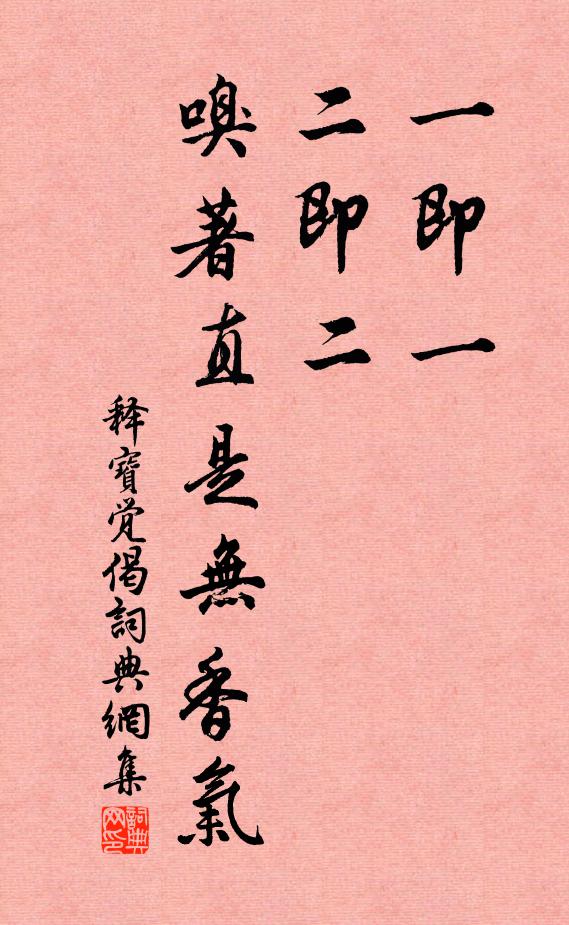 一即一
二即二
嗅著直是無香氣
释寶覺偈詞典網集
詞典网印